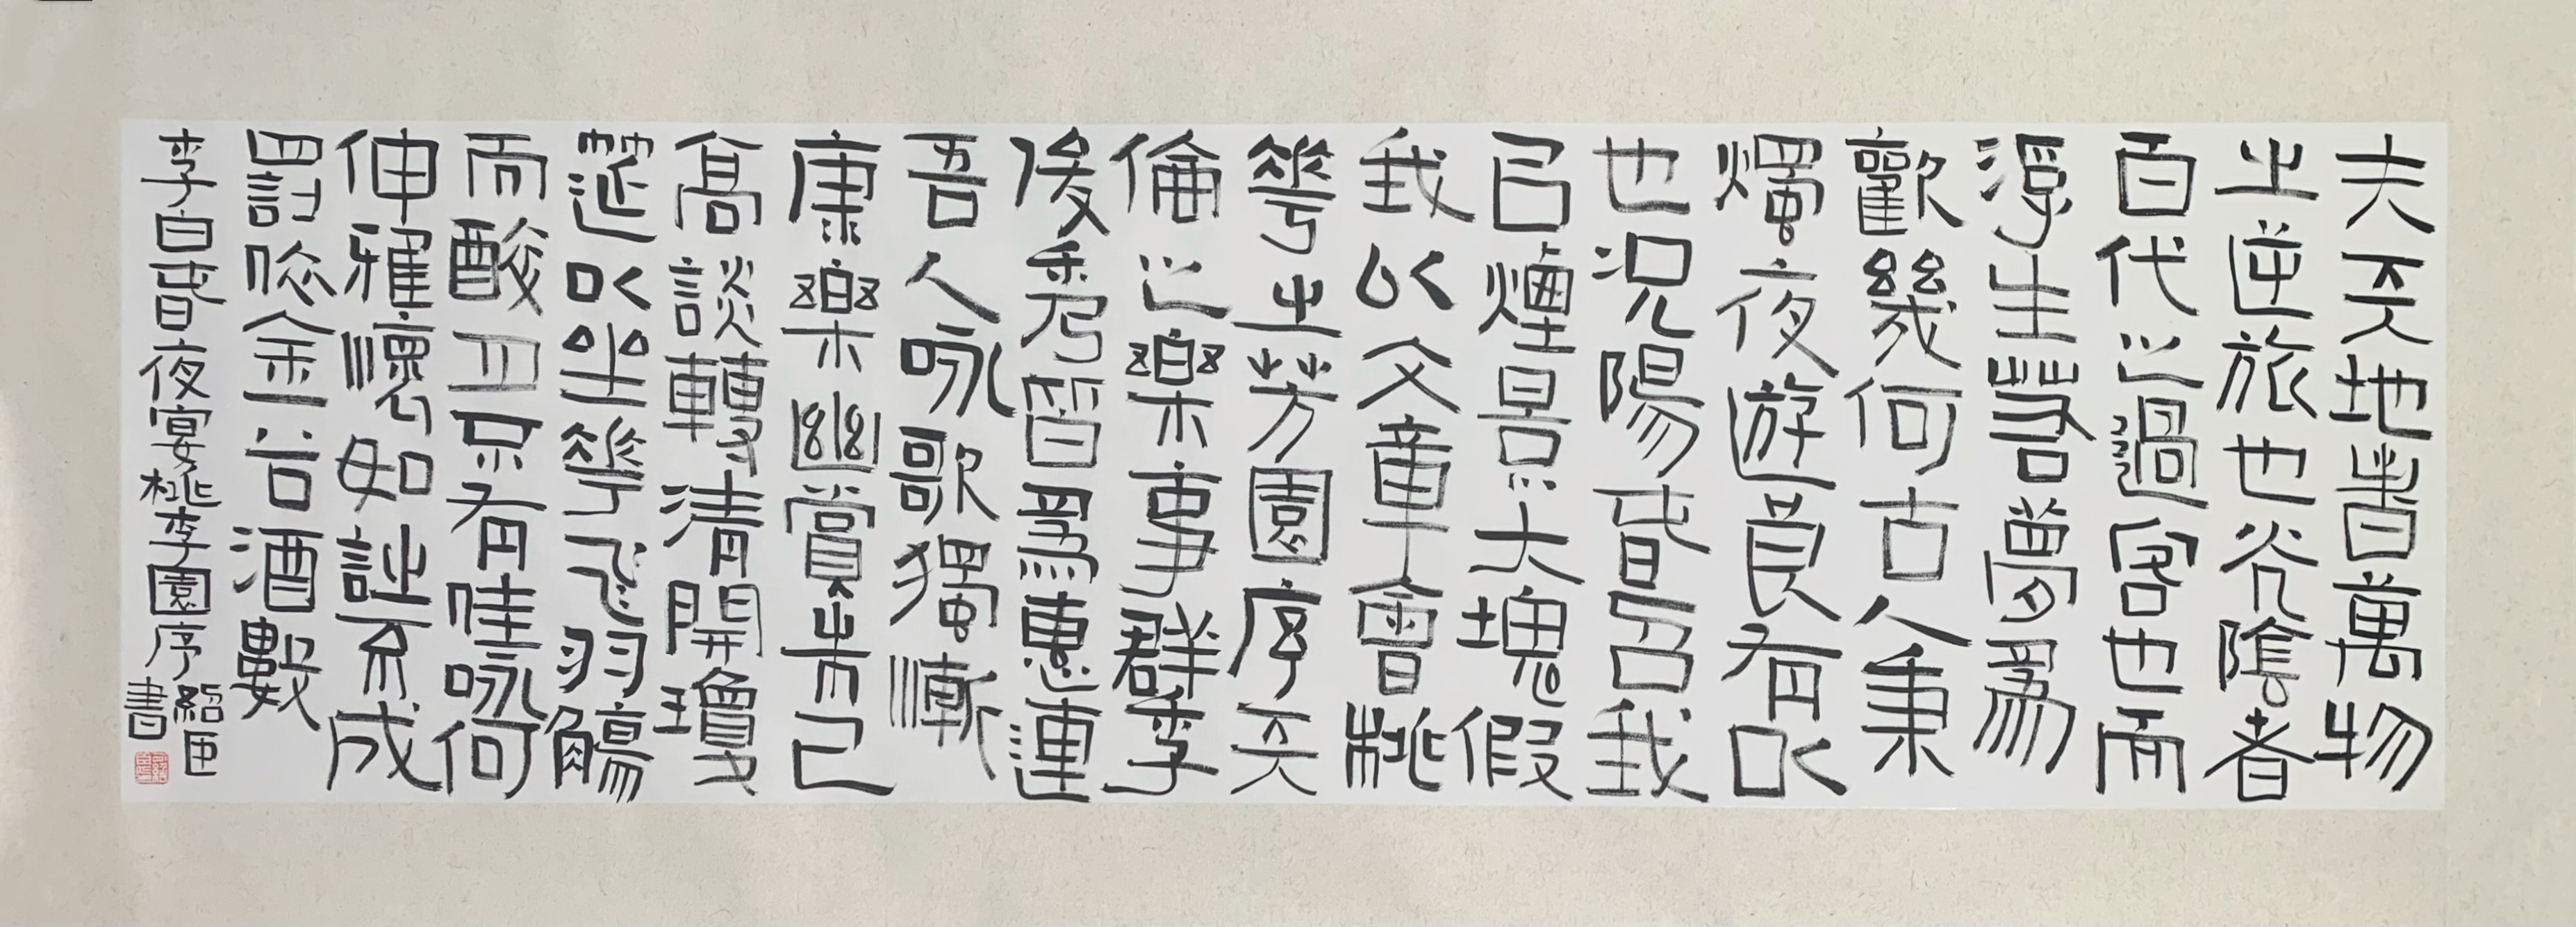 夫天地者萬物
之逆旅也光陰者
百代之過客也而
浮生若夢爲
歡幾何古人秉
燭夜遊良有以
也況陽春召我
以煙景大塊假
我以文章會桃
華之芳園序天
倫之樂事群季
俊秀皆爲惠連
吾人咏歌獨慚
康樂幽賞未已
高談轉清開瓊
筵以坐華飛羽觴
而醉月不有佳咏何
伸雅懷如詩不成
罰依金谷酒數
李白春夜宴桃李園序 紹臣
書